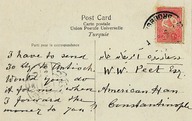 Post Card
Carte postale
Union Postale Universelle
Turquie
I have to send
30 Ltq to Antioch
Would you do
it for me when
I forward the
money to you?
W. W. Peet Esq.
American Han
Constantinople